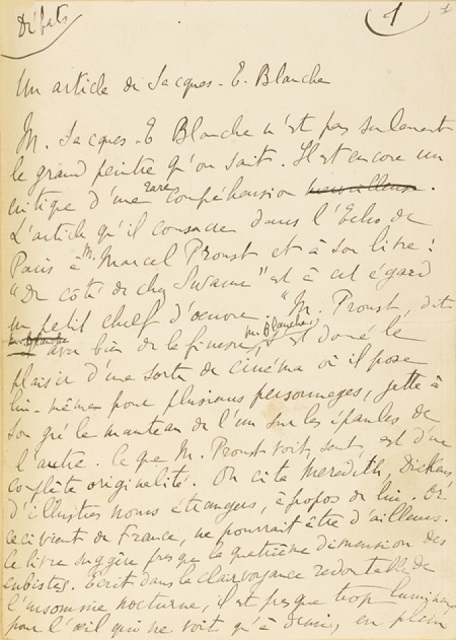 Débats
1
Un article de Jacques-E. Blanche
M. Jacques-E Blanche n'est pas seulement
le grand peintre qu'on sait. Il est encore un
critique d'une rare compréhension merveilleuse.
L'article qu'il consacre dans l'Echo de
Paris à M. Marcel Proust et à son livre :
"Du côté de chez Swann" est à cet égard
un petit chef d'œuvre. "M. Proust, dit
avec bien de la finesse, M. Blanche, s'est donné le
plaisir d'une sorte de cinéma où il pose
lui-même pour plusieurs personnages, jette à
son gré le manteau de l'un sur les épaules de
l'autre. Ce que M. Proust voit, sent, est d'une
complète originalité. On cite Meredith, Dickens
d'illustres noms étrangers, à propos de lui. Or.
ceci vient de France, ne pourrait être d'ailleurs.
Ce livre suggère presque la quatrième dimension des
cubistes. Écrit dans la clairvoyance redoutable de
l'insomnie nocturne, il est presque trop lumineux
pour l'œil qui ne voit qu'à demi, en plein